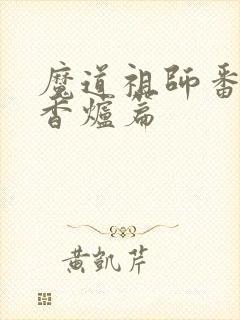 魔道祖師番
香爐篇
黃凱芹